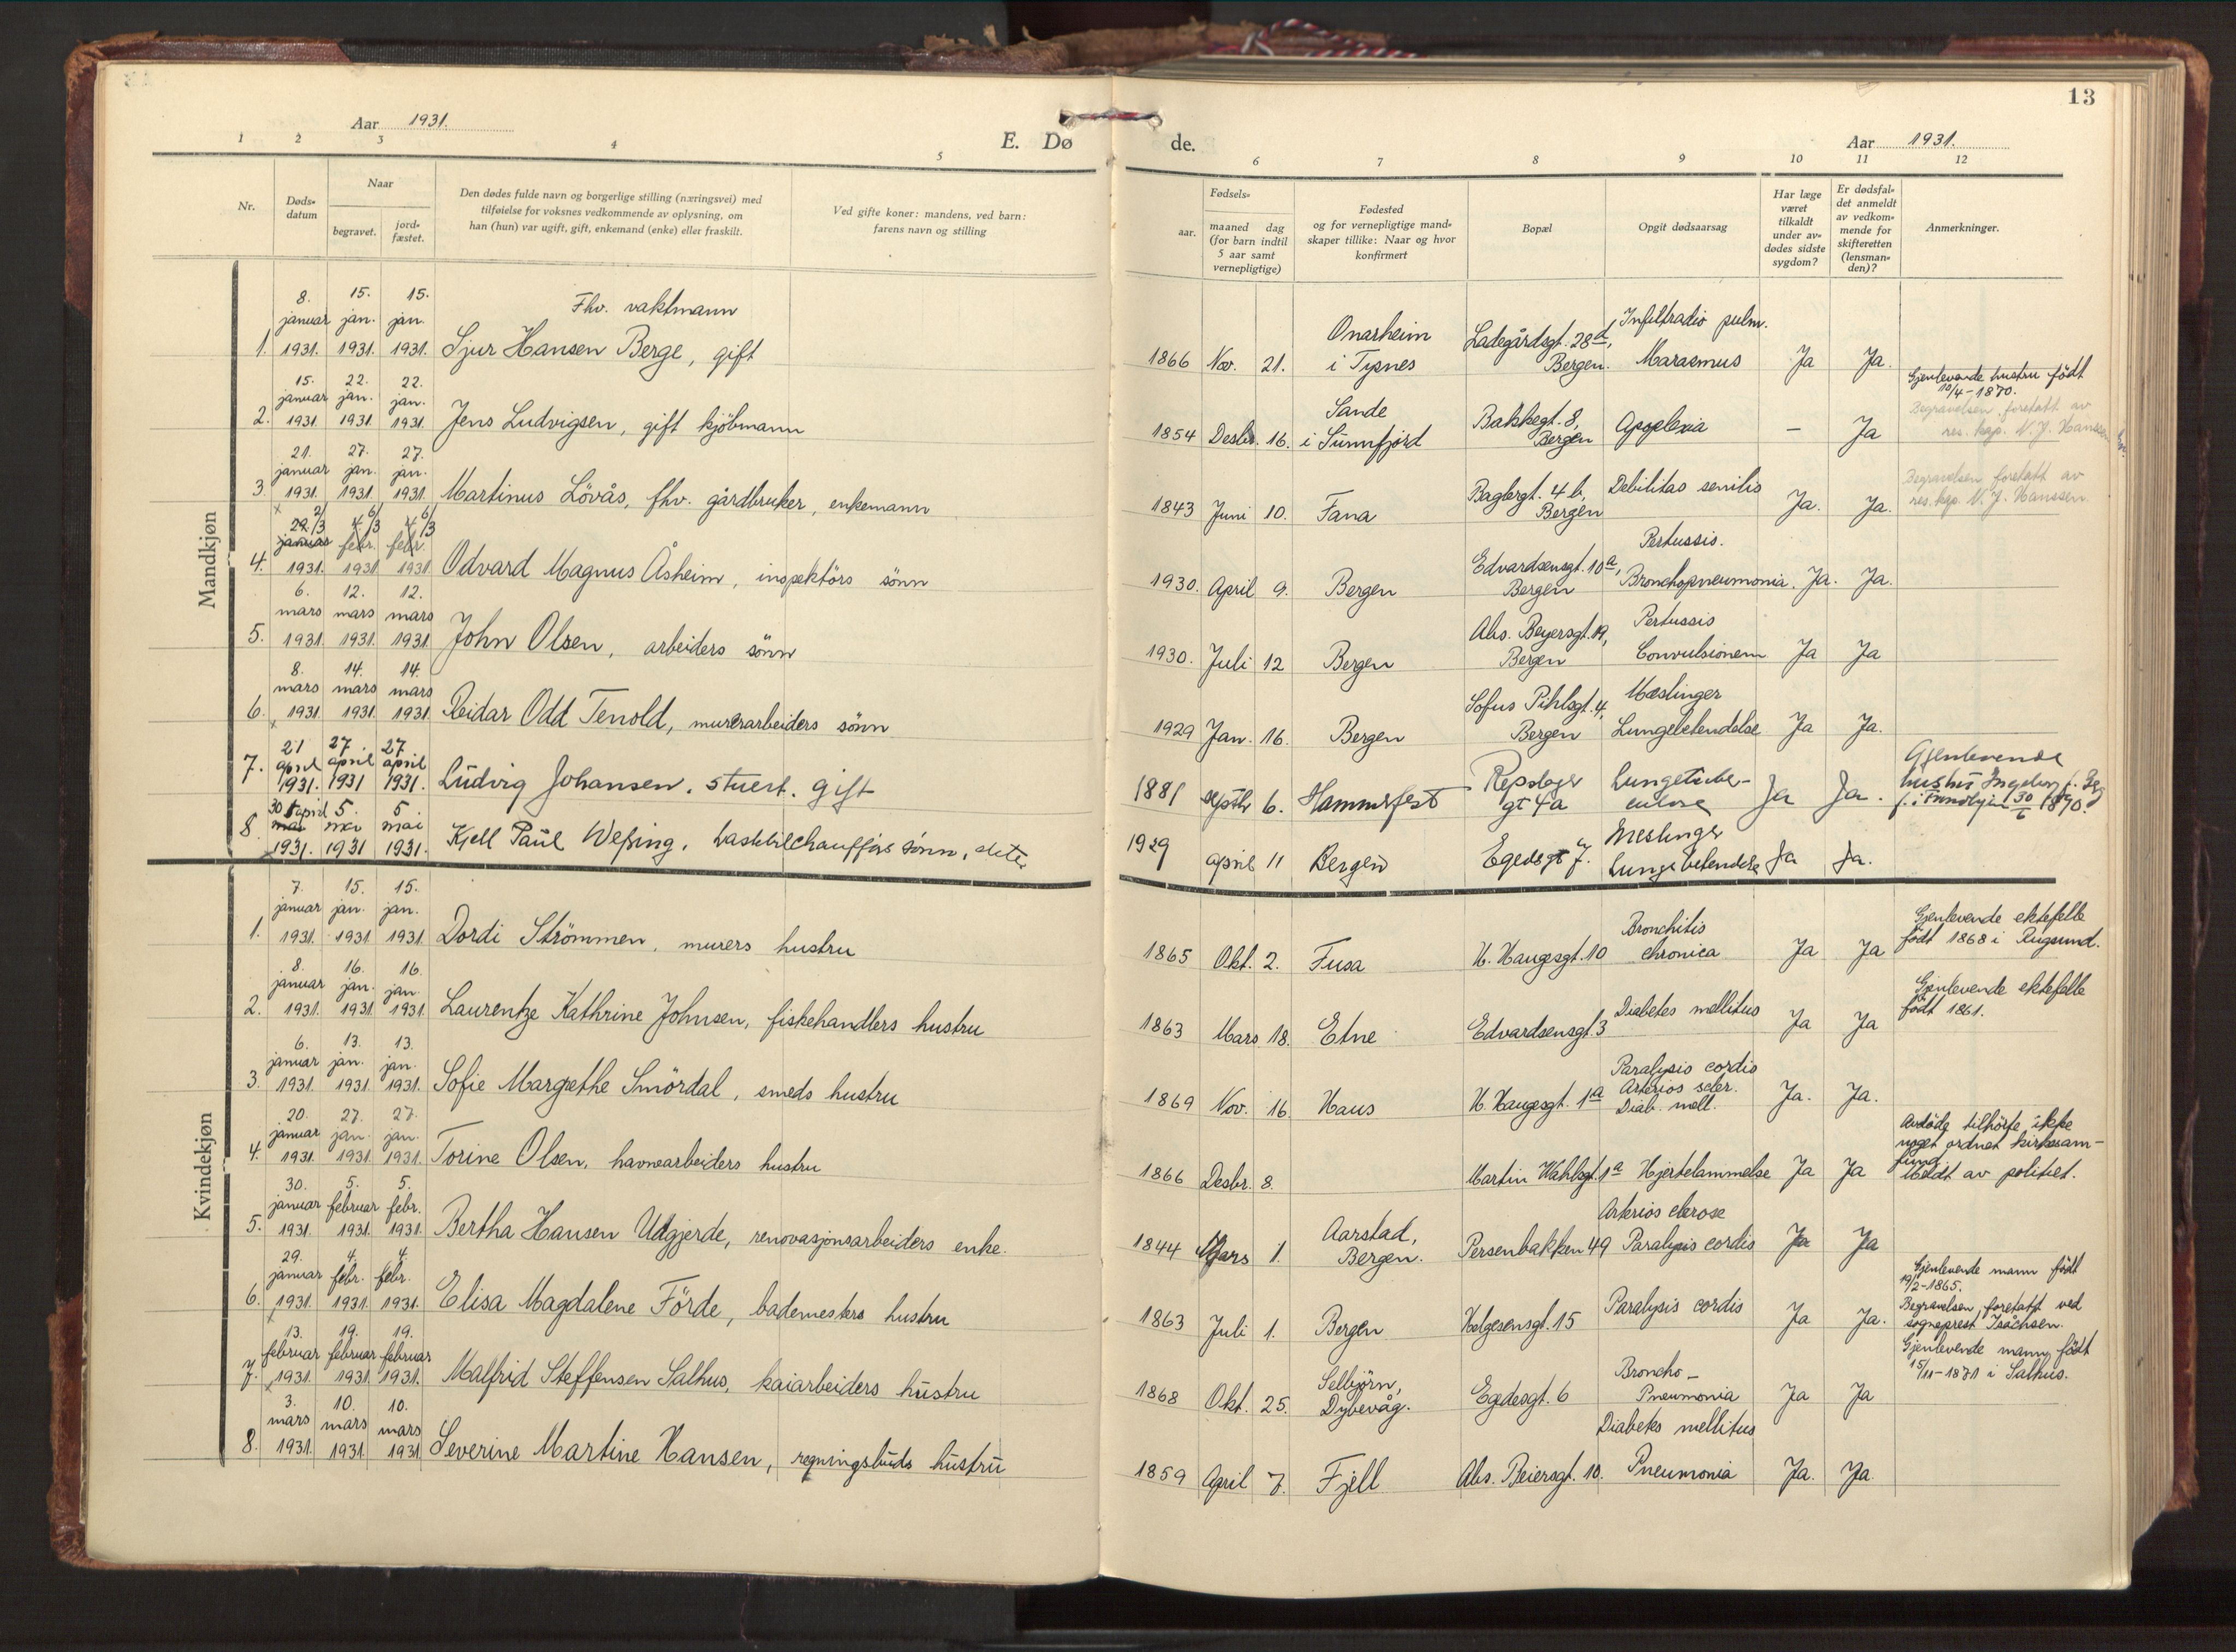 13
Aar 1931.
E. Dø
de.
Aar 1931.
1 2 3 4 5
6 7 8 9 10 11 12
Nr.
Døds-
datum
Naar
begravet.
jord-
fæstet.
Den dødes fulde navn og borgerlige stilling (næringsvei) med
tilføielse for voksnes vedkommende av oplysning, om
han (hun) var ugift, gift, enkemand (enke) eller fraskilt.
Ved gifte koner: mandens, ved barn:
farens navn og stilling
Fødsels-
aar.
maaned dag
(for barn indtil
5 aar samt
vernepligtige)
Fødested
og for vernepligtige mand-
skaper tillike: Naar og hvor
konfirmert
Bopæl
Opgit dødsaarsag
Har læge
været
tilkaldt
under av-
dødes sidste
sygdom?
Er dødsfal-
det anmeldt
av vedkom-
mende for
skifteretten
(lensman-
den)?
Anmerkninger.
Mandkjøn
8. 15. 15. Fhv. vaktmann
januar jan. jan. Onarheim Ladegårdsgt. 28d, Infiltradio pulm.
1. 1931. 1931. 1931. Sjur Hansen Berge, gift 1866 Nov. 21. i Tysnes Bergen. Marasmus Ja Ja.
15. 22. 22. Gjenlevende hustru födt
januar jan. jan. Sande Bakkegt. 8, 10/4-1870.
2. 1931. 1931. 1931. Jens Ludvigsen, gift kjöbmann 1854 Desbr. 16. i Sünnfjord Bergen Apoplexia - Ja Begravelsen foretatt av
res. kap. N. J. Hanssen
21. 27. 27.
januar jan. jan. Baglergt. 4 b, Begravelsen foretatt av
3. 1931. 1931. 1931. Martinus Lövås, fhv. gårdbruker, enkemann 1843 Juni 10. Fana Bergen Debilitas senilis Ja. Ja. res. kap. N. J. Hanssen.
2/3 6/3 6/3
januar febr. febr. Edvardsensgt. 10a, Pertussis.
4. 1931. 1931 1931 Odvard Magnus Åsheim, inspektörs sönn 1930. April 9. Bergen Bergen Bronchopneumonia. Ja. Ja.
6. 12. 12.
mars mars mars Abs. Beyersgt. 19, Pertussis
5. 1931. 1931. 1931. John Olsen, arbeiders sönn 1930. Juli 12 Bergen Bergen Convulsionem Ja Ja
8. 14. 14.
mars mars mars Sofus Pihlsgt. 4, Mæslinger
6. 1931. 1931. 1931. Reidar Odd Tenold, murerarbeiders sönn 1929 Jan. 16. Bergen Bergen Lungebetendelse Ja Ja.
21 27. 27 Gjenlevende
april april april Repslager Lungetuber-
7. 1931. 1931 1931. Ludvig Johansen, stuert. gift 1881 septbr 6. Hammerfest gt 4a culose Ja Ja. hustrü Ingeborg
30/6 1890.
30 april 5. 5
mai mai mai Meslinger
8. 1931. 1931 1931. Kjell Paül Wessing, lastebilchaufförs sönn, 1929 april 11 Bergen Egedsgt 7. Lungebetendelse Ja Ja.
Kvindekjøn
7. 15. 15.
januar jan. jan. Bronchitis Gjenlevende ektefelle
1. 1931. 1931 1931. Dordi Strömmen, murers hustru 1865 Okt. 2. Fusa H. Haugesgt. 10 chronica Ja Ja födt 1868 i Rugsund.
8. 16. 16.
januar jan. jan. Gjenlevende ektefelle
2. 1931. 1931. 1931. Laurentze Kathrine Johnsen, fiskehandlers hustru 1863 Mars 18. Etne Edvardsensgt. 3 Diabetes mellitus Ja Ja födt 1861.
6. 13. 13. Paralysis cordis
januar jan. jan. Arterios scler.
3. 1931. 1931. 1931. Sofie Margrethe Smördal, smeds hustru 1869 Nov. 16 Haus H. Haugesgt. 1a Diab. mell. Ja. Ja.
20. 27. 27. Avdöde tilhörte ikke
januar jan. jan. noget ordnet kirkesam-
fund
4. 1931. 1931. 1931. Torine Olsen, havnearbeiders hustru 1866 Desbr. 8. Martin Wahlsgt. 1a Hjertelammelse Ja Ja Meldt av politiet.
30. 5. 5.
januar februar febr. Aarstad, Arterios clerose
5. 1931. 1931. 1931. Bertha Hansen Udgjerde, renovasjonsarbeiders enke. 1844 Mars 1. Bergen. Persenbakken 49 Paralysis cordis Ja Ja
29. 4. 4. Gjenlevende mann födt
januar febr. febr. 19/2-1865.
6. 1931. 1931. 1931. Elisa Magdalene Förde, bademesters hustru 1863 Juli 1. Bergen Helgesensgt. 15 Paralysis cordis Ja Ja. Begravelsen foretatt ved
sogneprest Isachsen.
13. 19. 19. Gjenlevende mann födt
februar februar februar Selbjörn, Broncho- 15/11-1871 i Salhus.
7. 1931. 1931. 1931. Malfrid Steffensen Salhus, kaiarbeiders hüstru 1868 Okt. 25. Dybevåg. Egdesgt. 6 Pneumonia Ja Ja
3. 10. 10.
mars mars mars Diabetes mellitus
8. 1931. 1931. 1931 Severine Martine Hansen, regningsbüds hüstrü 1859 April 7. Fjell Abs. Beiersgt. 10. Pneumonia Ja. Ja.